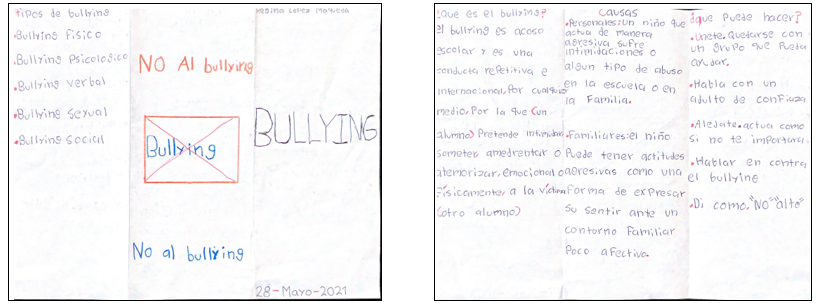 tipos de bullying
•Bullying Fisico
•Bullying Psicologico
•Bullying verbal
•Bullying sexual
•Bullying social
NO Al bullying
Bullying
No al bullying
BULLYING
28-Mayo-2021
¿Que es el bullying?
el bullying es acoso
escolar y es una
conducta repetitiva e
internacional, Por cualquier
medio, Por la que (un
alumno) Pretende intimidar
someter amedrentar o
atemorizar, emocional o
Físicamente, a la víctima
(otro alumno)
Causas
•Personales: Un niño que
actua de manera
agresiva sufre
intimidaciones o
algun tipo de abuso
en la escuela o en
la Familia.
•Familiares: el niño
Puede tener actitudes
agresivas como una
Forma de expresar
su sentir ante un
contorno Familiar
Poco afectivo.
¿que Puede hacer?
•Unete. quedarse con
un grupo que Pueda
ayudar.
•Habla con un
adulto de confiaza
•Alejate. actua como
si no te importara.
•Hablar en contra
el bullying
•Di como. "NO" "alto"